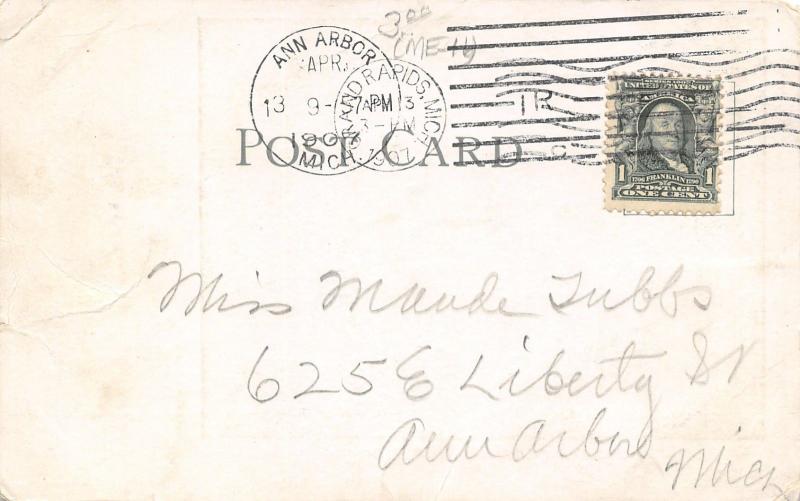 3.00
(ME-14)
ANN ARBOR
APR
13 9- 7PM
1907
MICH.
GRAND RAPIDS, MICH.
APR 13
3-PM
1907
POST CARD
UNITED STATES OF
AMERICA
1 1706 FRANKLIN 1790 1
POSTAGE
ONE CENT
Miss Maude Tubbs
625 E Liberty St
Ann Arbor
Mich